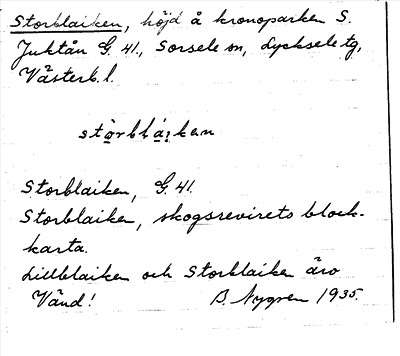 Storblaiken, höjd å kronoparken S.
Juktån G. 41., Sorsele sn, Lycksele tg,
Västerb. l.
stòrblá̩i̩ken
Storblaiken, G. 41.
Storblaiken, skogsrevirets block-
karta.
Lillblaiken och Storblaiken äro
Vänd! B. Nygren 1935.